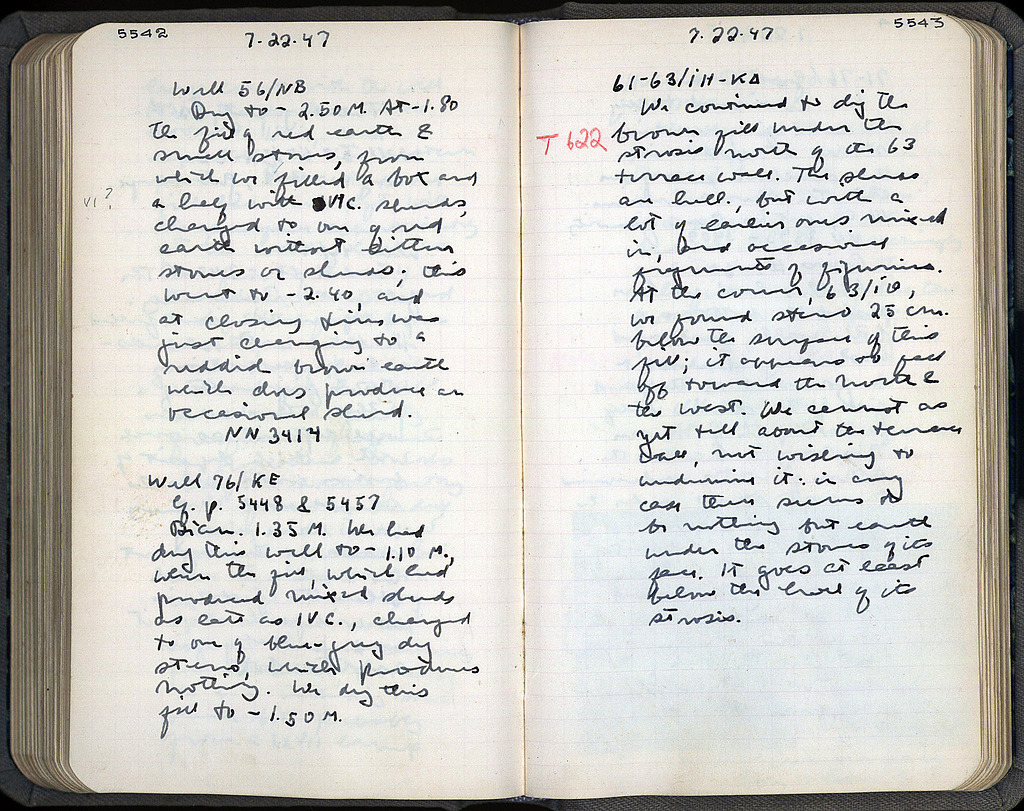 5542
7.22.47
Well 56/NB
Dug to - 2.50 M. At -1.80
the fill of red earth &
small stones, from
which we filled a box and
a half with VIC. sherds,
VI?
changed to one of red
earth without either
stones or sherds; this
went to -2.40, and
at closing time was
just changing to a
reddish brown earth
which does produce an
occasional sherd.
NN 3414
Well 76/KE
Cf. p. 5448 & 5457
Diam. 1.35 M. We had
dug this well to -1.10 M.,
when the fill, which had
produced mixed sherds
as late as IVC., changed
to one of blue-grey dry
stereo, which produces
nothing. We dug this
fill to - 1.50 M.
5543
7.22.47
61-63/IH-KA
We continued to dig the
T 622
brown fill under the
strosis north of the 63
terrace wall. The sherds
are hell., but with a
lot of earlier ones mixed
in, and occasional
fragments of figurines.
At the corner, 63/IΘ,
we found stereo 25 cm.
below the surface of this
fill; it appears to fall
off toward the north &
the west. We cannot as
yet tell about the terrace
wall, not wishing to
undermine it: in any
case there seems to
be nothing but earth
under the stones of its
face. It goes at least
below the level of its
strosis.